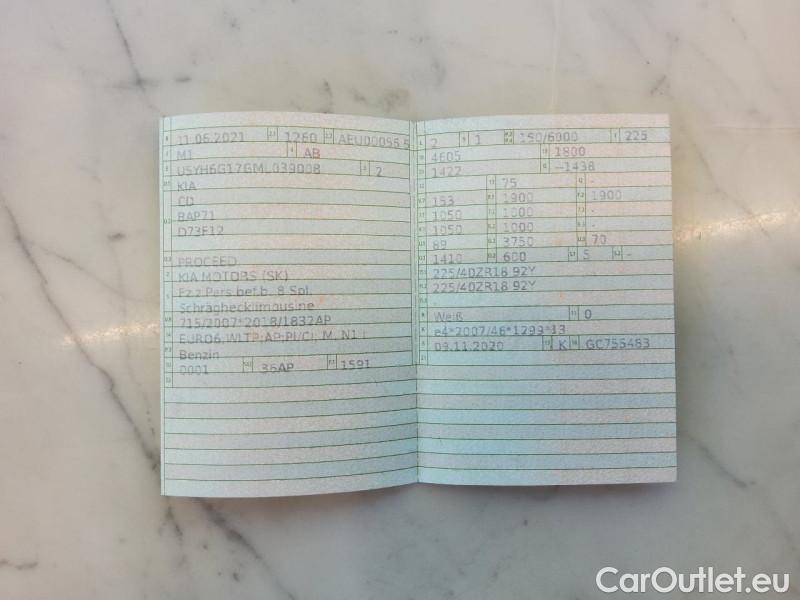 11.06.2021 1260
M1 AB
U5YH6G17GML039008 2
KIA
CD
BAP71
D73F12
PROCEED
KIA MOTORS (SK)
Fz.z.Pers.bef.b. 8 Spl.
Schräghecklimousine
715/2007*2018/1832AP
EURO6,WLTP;AP;PI/CI; M, N1 I
Benzin
0001 36AP 1591
2 1 150/6000 225
4605 1800
1422 –1438
- 75 -
153 1900 1900
1050 1000 -
1050 1000 -
89 3750 70
1410 600 5 -
225/40ZR18 92Y
225/40ZR18 92Y
-
Weiß 0
e4*2007/46*1299*13
09.11.2020 K GC755483
CarOutlet.eu